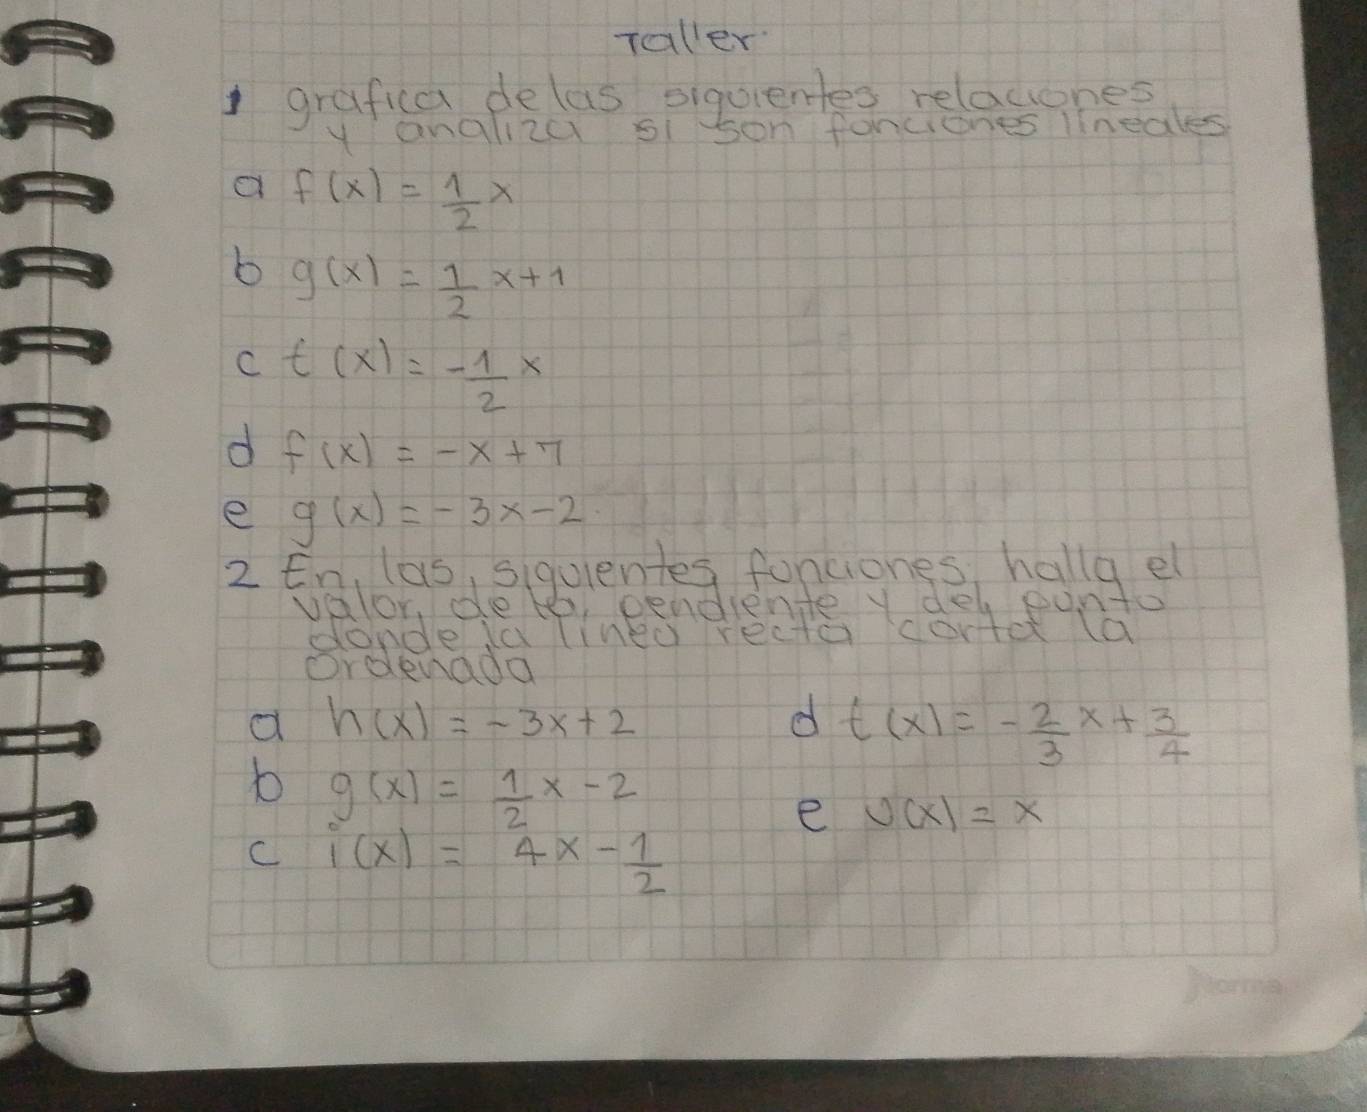 Taller
1 grafica delas siguientes relaciones
y analiza si son funciones lineales
a f(x) = 1/2 x
b g(x) = 1/2 x + 1
c t(x) = -1/2 x
d f(x) = -x + 7
e g(x) = -3x - 2
2 En las siguientes funciones halla el
valor de la pendiente y del punto
donde la linea recta corta la
ordenada
a h(x) = -3x + 2
b g(x) = 1/2 x - 2
c i(x) = 4x - 1/2
d t(x) = -2/3 x + 3/4
e u(x) = x
Norma